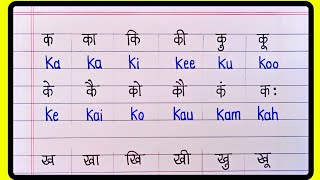 क का कि की कु कू
Ka ka ki kee ku koo
के कै को कौ कं क:
ke kai ko kau kam kah
ख खा खि खी खु खू